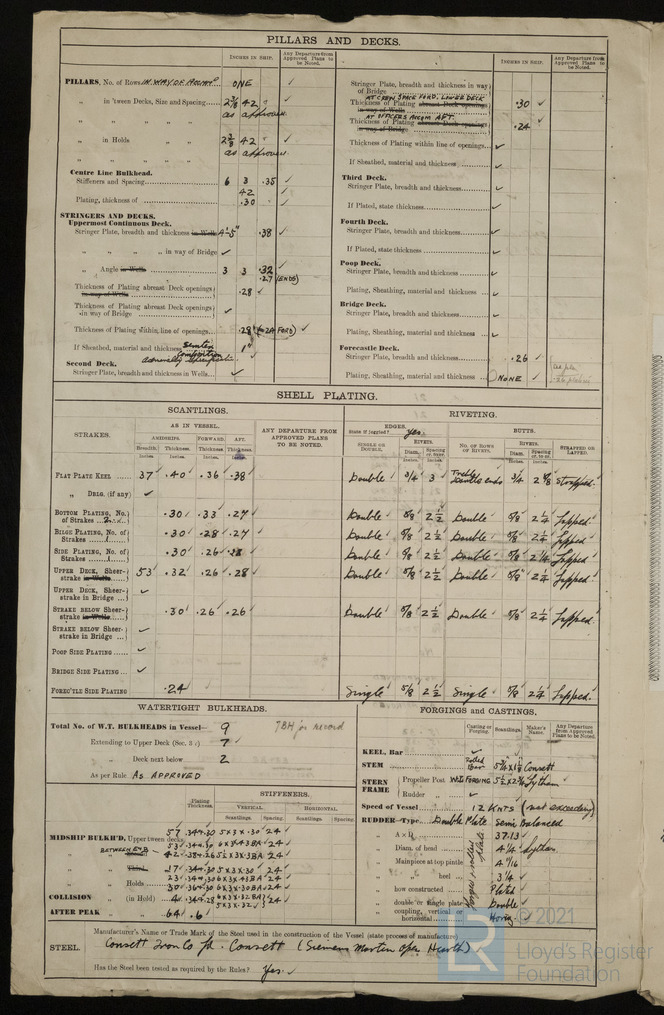 PILLARS AND DECKS.
INCHES IN SHIP.
Any Departure from Approved Plans to be Noted.
PILLARS, No. of Rows IN WAY OF ACCOMN ONE
„ in 'tween Decks, Size and Spacing 2⅜ 42
as approved
„ in Holds 2⅜ 42
as approved
Centre Line Bulkhead.
Stiffeners and Spacing 6 3 .35
42
Plating, thickness of .30
STRINGERS AND DECKS.
Uppermost Continuous Deck.
Stringer Plate, breadth and thickness in Wells 4'-5" .38
„ „ „ „ in way of Bridge
„ Angle in Wells 3 3 .32
.27 (ENDS)
Thickness of Plating abreast Deck openings in way of Wells .28
Thickness of Plating abreast Deck openings in way of Bridge
Thickness of Plating within line of openings .28 (.24 FORD)
If Sheathed, material and thickness Semtex Composition 1"
Second Deck.
Stringer Plate, breadth and thickness in Wells
INCHES IN SHIP.
Any Departure from Approved Plans to be Noted.
Stringer Plate, breadth and thickness in way of Bridge
AT CREW SPACE FORD, LOWER DECK
Thickness of Plating abreast Deck openings in way of Wells .30
AT OFFICERS ACCOM AFT.
Thickness of Plating abreast Deck openings in way of Bridge .24
Thickness of Plating within line of openings
If Sheathed, material and thickness
Third Deck.
Stringer Plate, breadth and thickness
If Plated, state thickness
Fourth Deck.
Stringer Plate, breadth and thickness
If Plated, state thickness
Poop Deck.
Stringer Plate, breadth and thickness
Plating, Sheathing, material and thickness
Bridge Deck.
Stringer Plate, breadth and thickness
Plating, Sheathing, material and thickness
Forecastle Deck.
Stringer Plate, breadth and thickness .26
Plating, Sheathing, material and thickness NONE
SHELL PLATING.
SCANTLINGS.
RIVETING.
STRAKES.
AS IN VESSEL.
AMIDSHIPS. FORWARD. AFT.
Breadth. Thickness. Thickness. Thickness.
Inches. Inches. Inches. Inches.
ANY DEPARTURE FROM APPROVED PLANS TO BE NOTED.
EDGES.
State if joggled? Yes.
SINGLE OR DOUBLE.
RIVETS.
Diam. Spacing cr. to cr.
BUTTS.
NO. OF ROWS OF RIVETS.
RIVETS.
Diam. Spacing cr. to cr.
STRAPPED OR LAPPED.
FLAT PLATE KEEL 37 .40 .36 .38 Double 3/4 3 Treble Double ends 3/4 2⅝ Strapped.
„ DBLG. (if any)
BOTTOM PLATING, No. of Strakes 2 .30 .33 .27 Double 5/8 2½ Double 5/8 2¼ Lapped.
BILGE PLATING, No. of Strakes 1 .30 .28 .27 Double 5/8 2½ Double 5/8 2¼ Lapped
SIDE PLATING, No. of Strakes 1 .30 .26 .28 Double 5/8 2½ Double 5/8 2¼ Lapped
UPPER DECK, Sheerstrake in Wells 53 .32 .26 .28 Double 5/8 2½ Double 5/8 2¼ Lapped.
UPPER DECK, Sheerstrake in Bridge
STRAKE BELOW Sheerstrake in Wells .30 .26 .26 Double 5/8 2½ Double 5/8 2¼ Lapped.
STRAKE BELOW Sheerstrake in Bridge
POOP SIDE PLATING
BRIDGE SIDE PLATING
FOREC'TLE SIDE PLATING .24 Single 5/8 2½ Single 5/8 2¼ Lapped.
WATERTIGHT BULKHEADS.
Total No. of W.T. BULKHEADS in Vessel 9 7BH for record
Extending to Upper Deck 7
„ Deck next below 2
As per Rule AS APPROVED
Plating Thickness.
STIFFENERS.
VERTICAL. HORIZONTAL.
Scantlings. Spacing. Scantlings. Spacing.
MIDSHIP BULKH'D, Upper tween decks
„ Third
„ Holds
COLLISION „ (in Hold)
AFTER PEAK „ 64 .6
FORGINGS AND CASTINGS.
Casting or Forging. Scantlings. Maker's Name. Any Departure from Approved Plans to be Noted.
KEEL, Bar
STEM Rolled Bar Consett
STERN FRAME
Propeller Post W.I. FORGING Lytham
Rudder „
Speed of Vessel 12 KNTS (not exceeding)
RUDDER—Type Double Plate Semi Balanced
„ A×R 37.13
„ Diam. of head 4¼ Lytham
„ Mainpiece at top pintle
„ „ heel 3¼
„ how constructed Plated
„ double or single plate Double
„ coupling, vertical or horizontal Horiz.
STEEL.
Manufacturer's Name or Trade Mark of the Steel used in the construction of the Vessel (state process of manufacture)
Consett Iron Co Ltd. Consett (Siemens Martin Open Hearth)
Has the Steel been tested as required by the Rules? Yes.
© 2021
LR
Lloyd's Register
Foundation